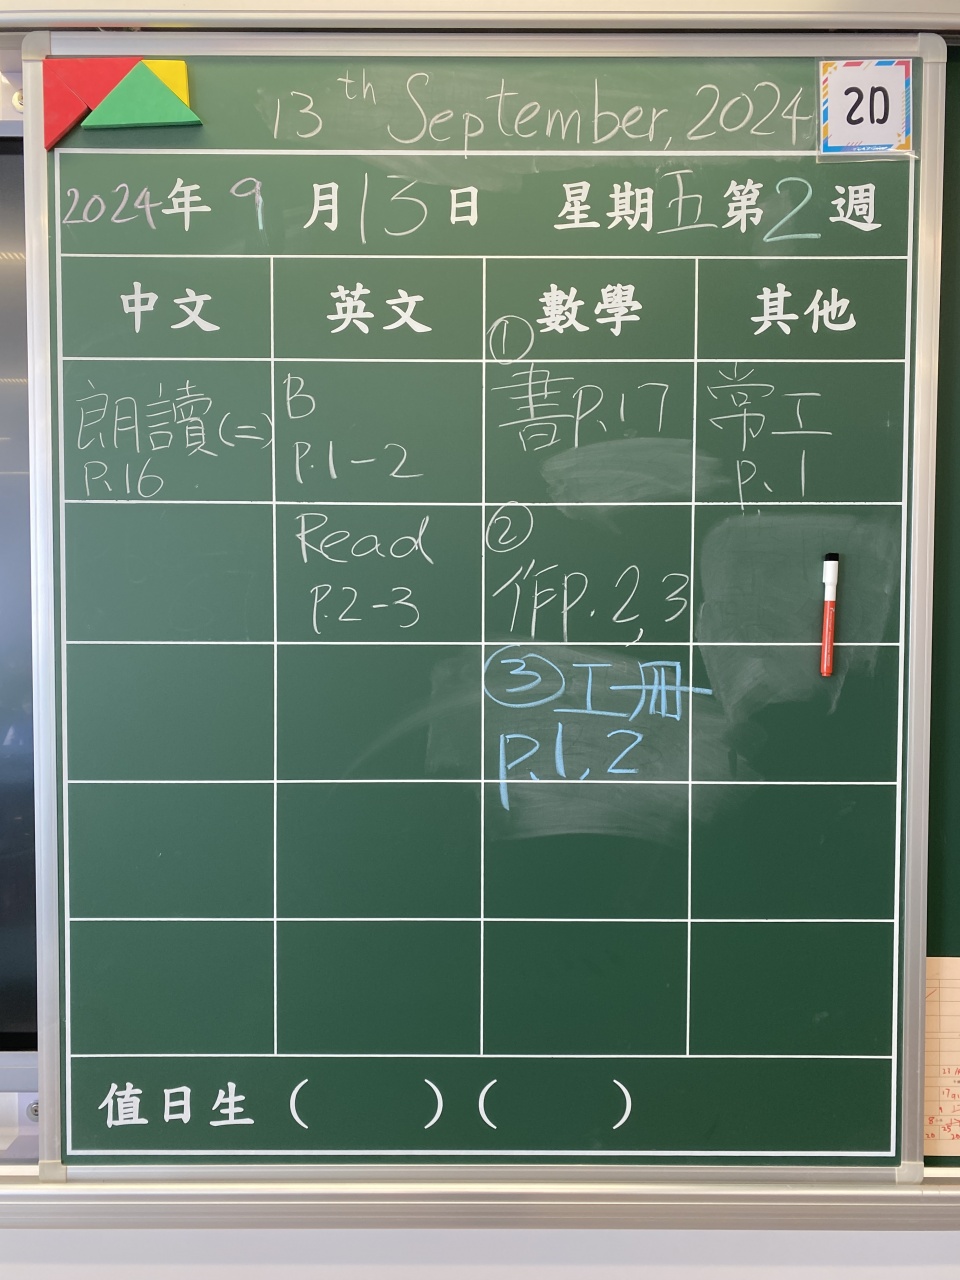 13th September, 2024
2D
2024年9月13日 星期五第2週
中文 英文 數學 其他
朗讀(二)
P.16
B
P.1-2
①
書P.17
常工
p.1
Read
P.2-3
②
作p.2,3
③工冊
p.1,2
值日生 ( ) ( )